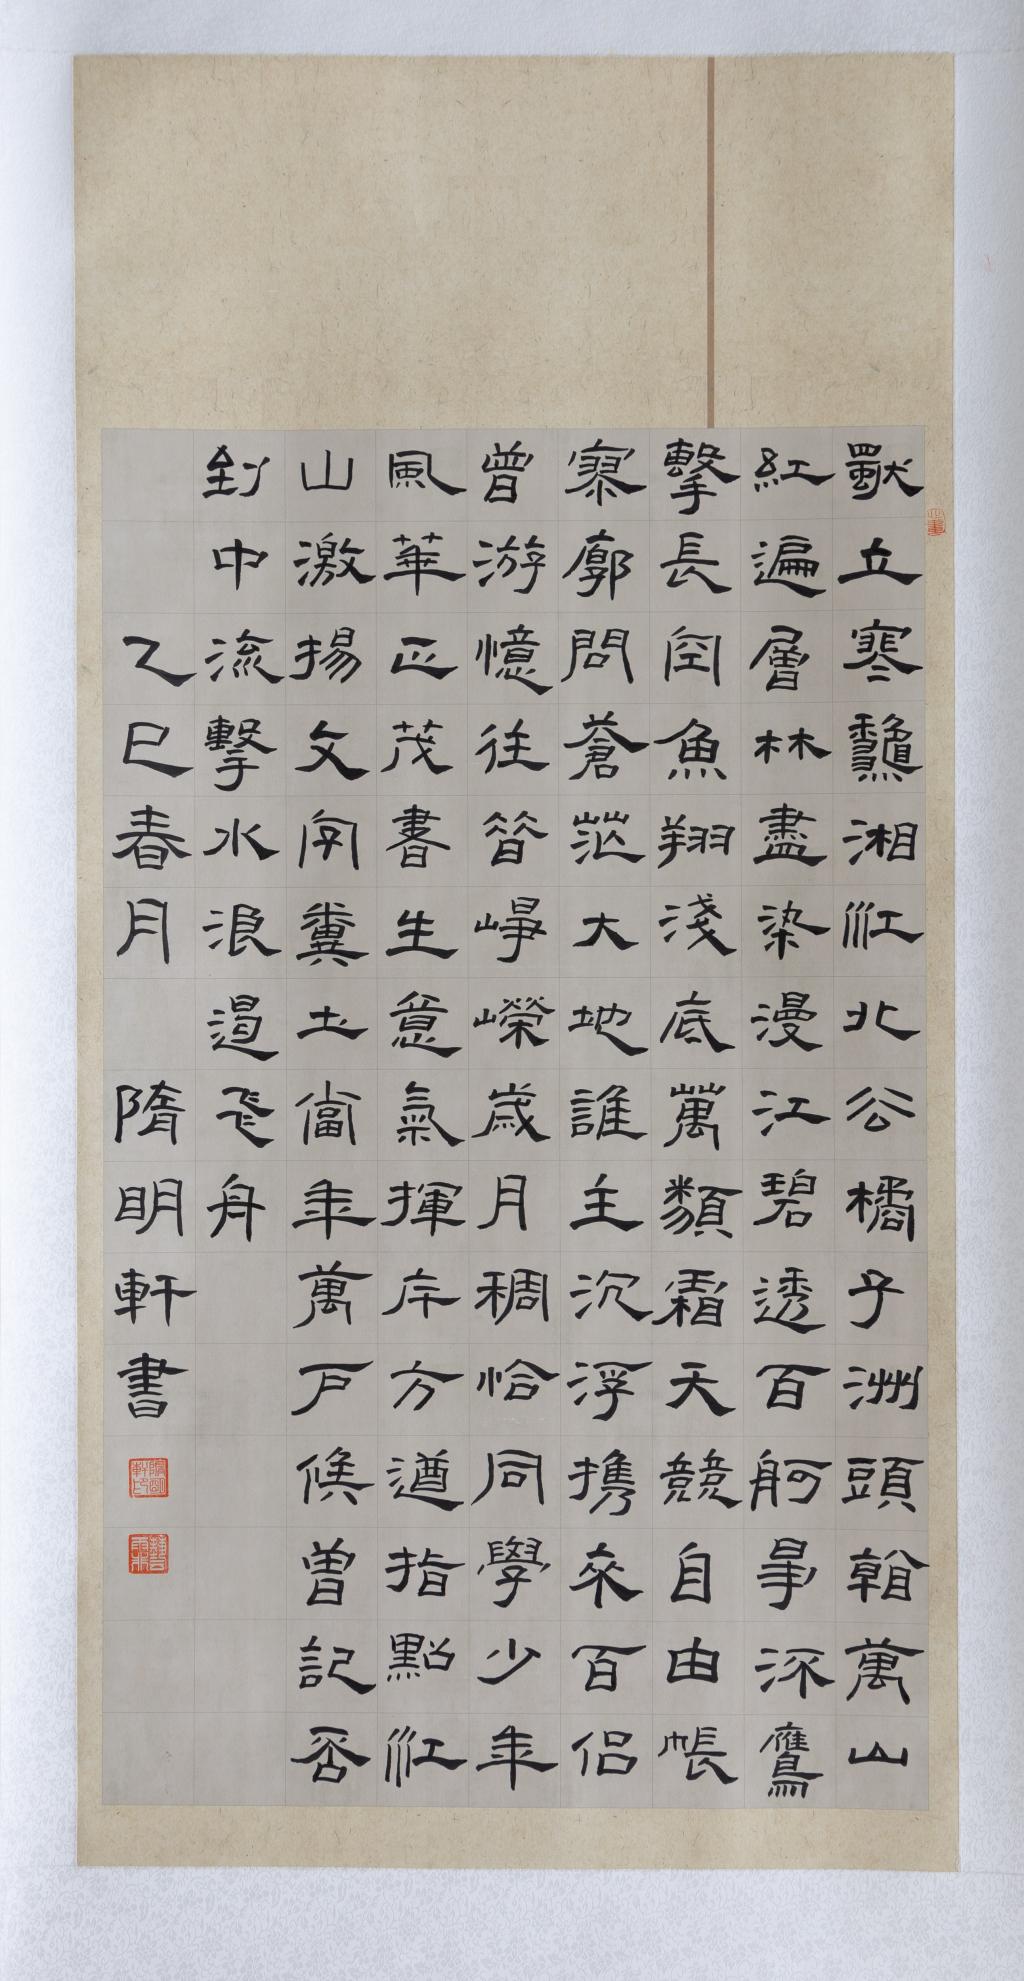 獨立寒龝湘江北去橘子洲頭看萬山
紅遍層林盡染漫江碧透百舸爭流鷹
擊長空魚翔淺底萬類霜天競自由悵
寥廓問蒼茫大地誰主沉浮携來百侶
曾游憶往昔崢嶸歲月稠恰同學少年
風華正茂書生意氣揮斥方遒指點江
山激揚文字糞土當年萬戶侯曾記否
到中流擊水浪遏飛舟
乙巳春月 隋明軒書
隋明軒印